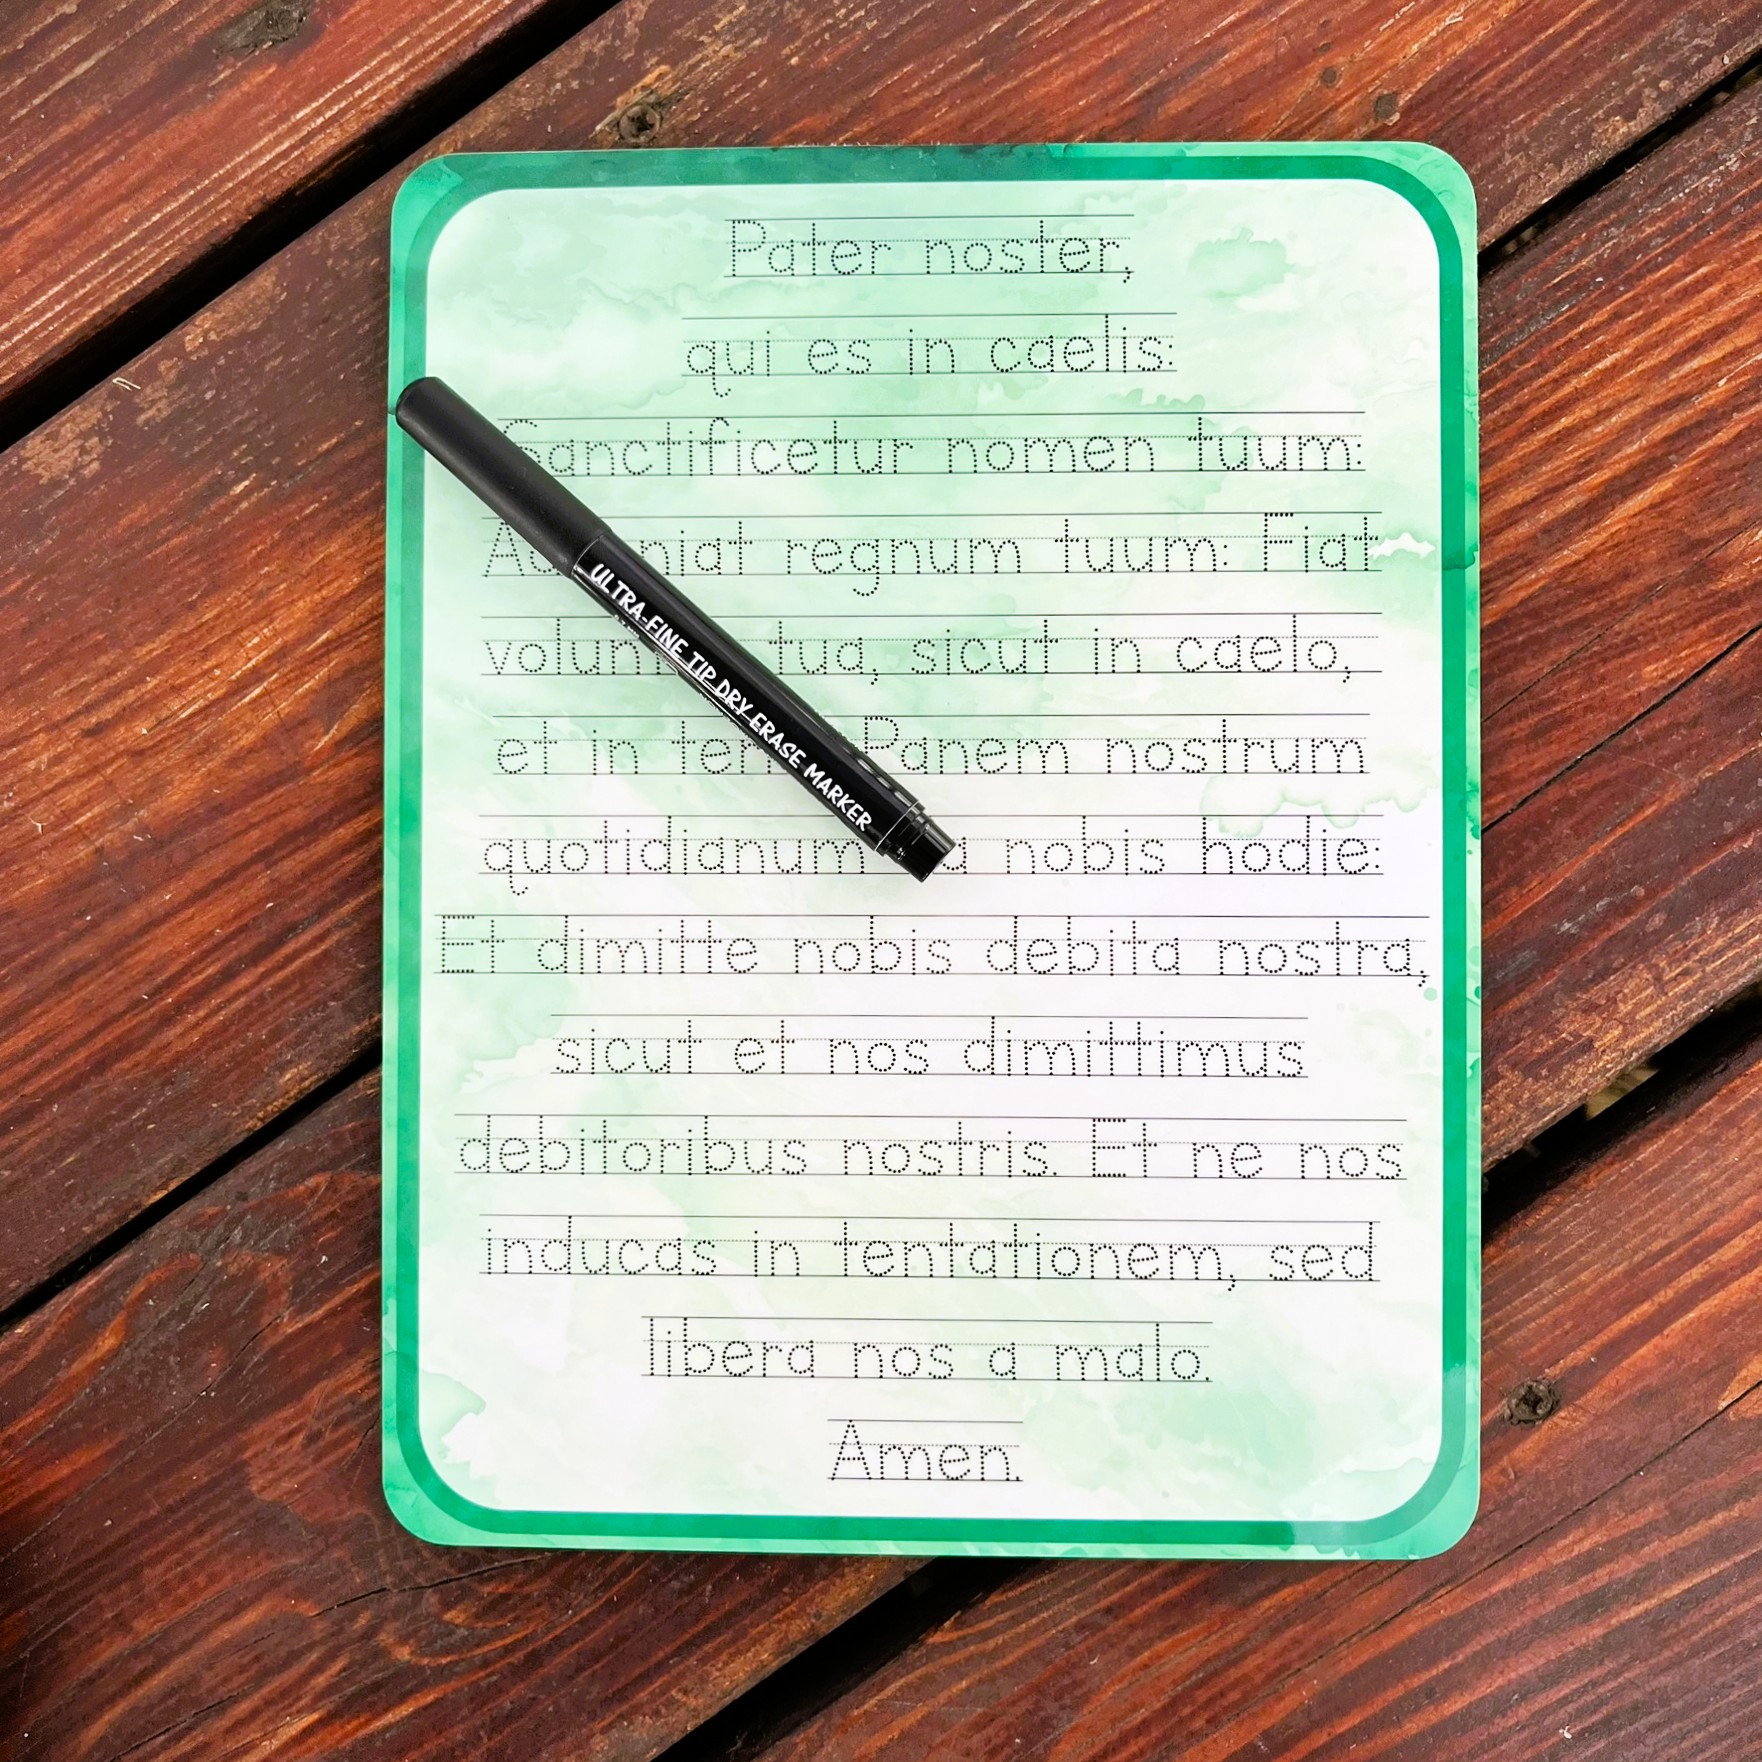 Pater noster,
qui es in caelis:
Sanctificetur nomen tuum:
regnum tuum: Fiat
tua, sicut in caelo,
et in Panem nostrum
quotidianum nobis hodie:
Et dimitte nobis debita nostra,
sicut et nos dimittimus
debitoribus nostris. Et ne nos
inducas in tentationem, sed
libera nos a malo.
Amen.
ULTRA-FINE TIP DRY ERASE MARKER